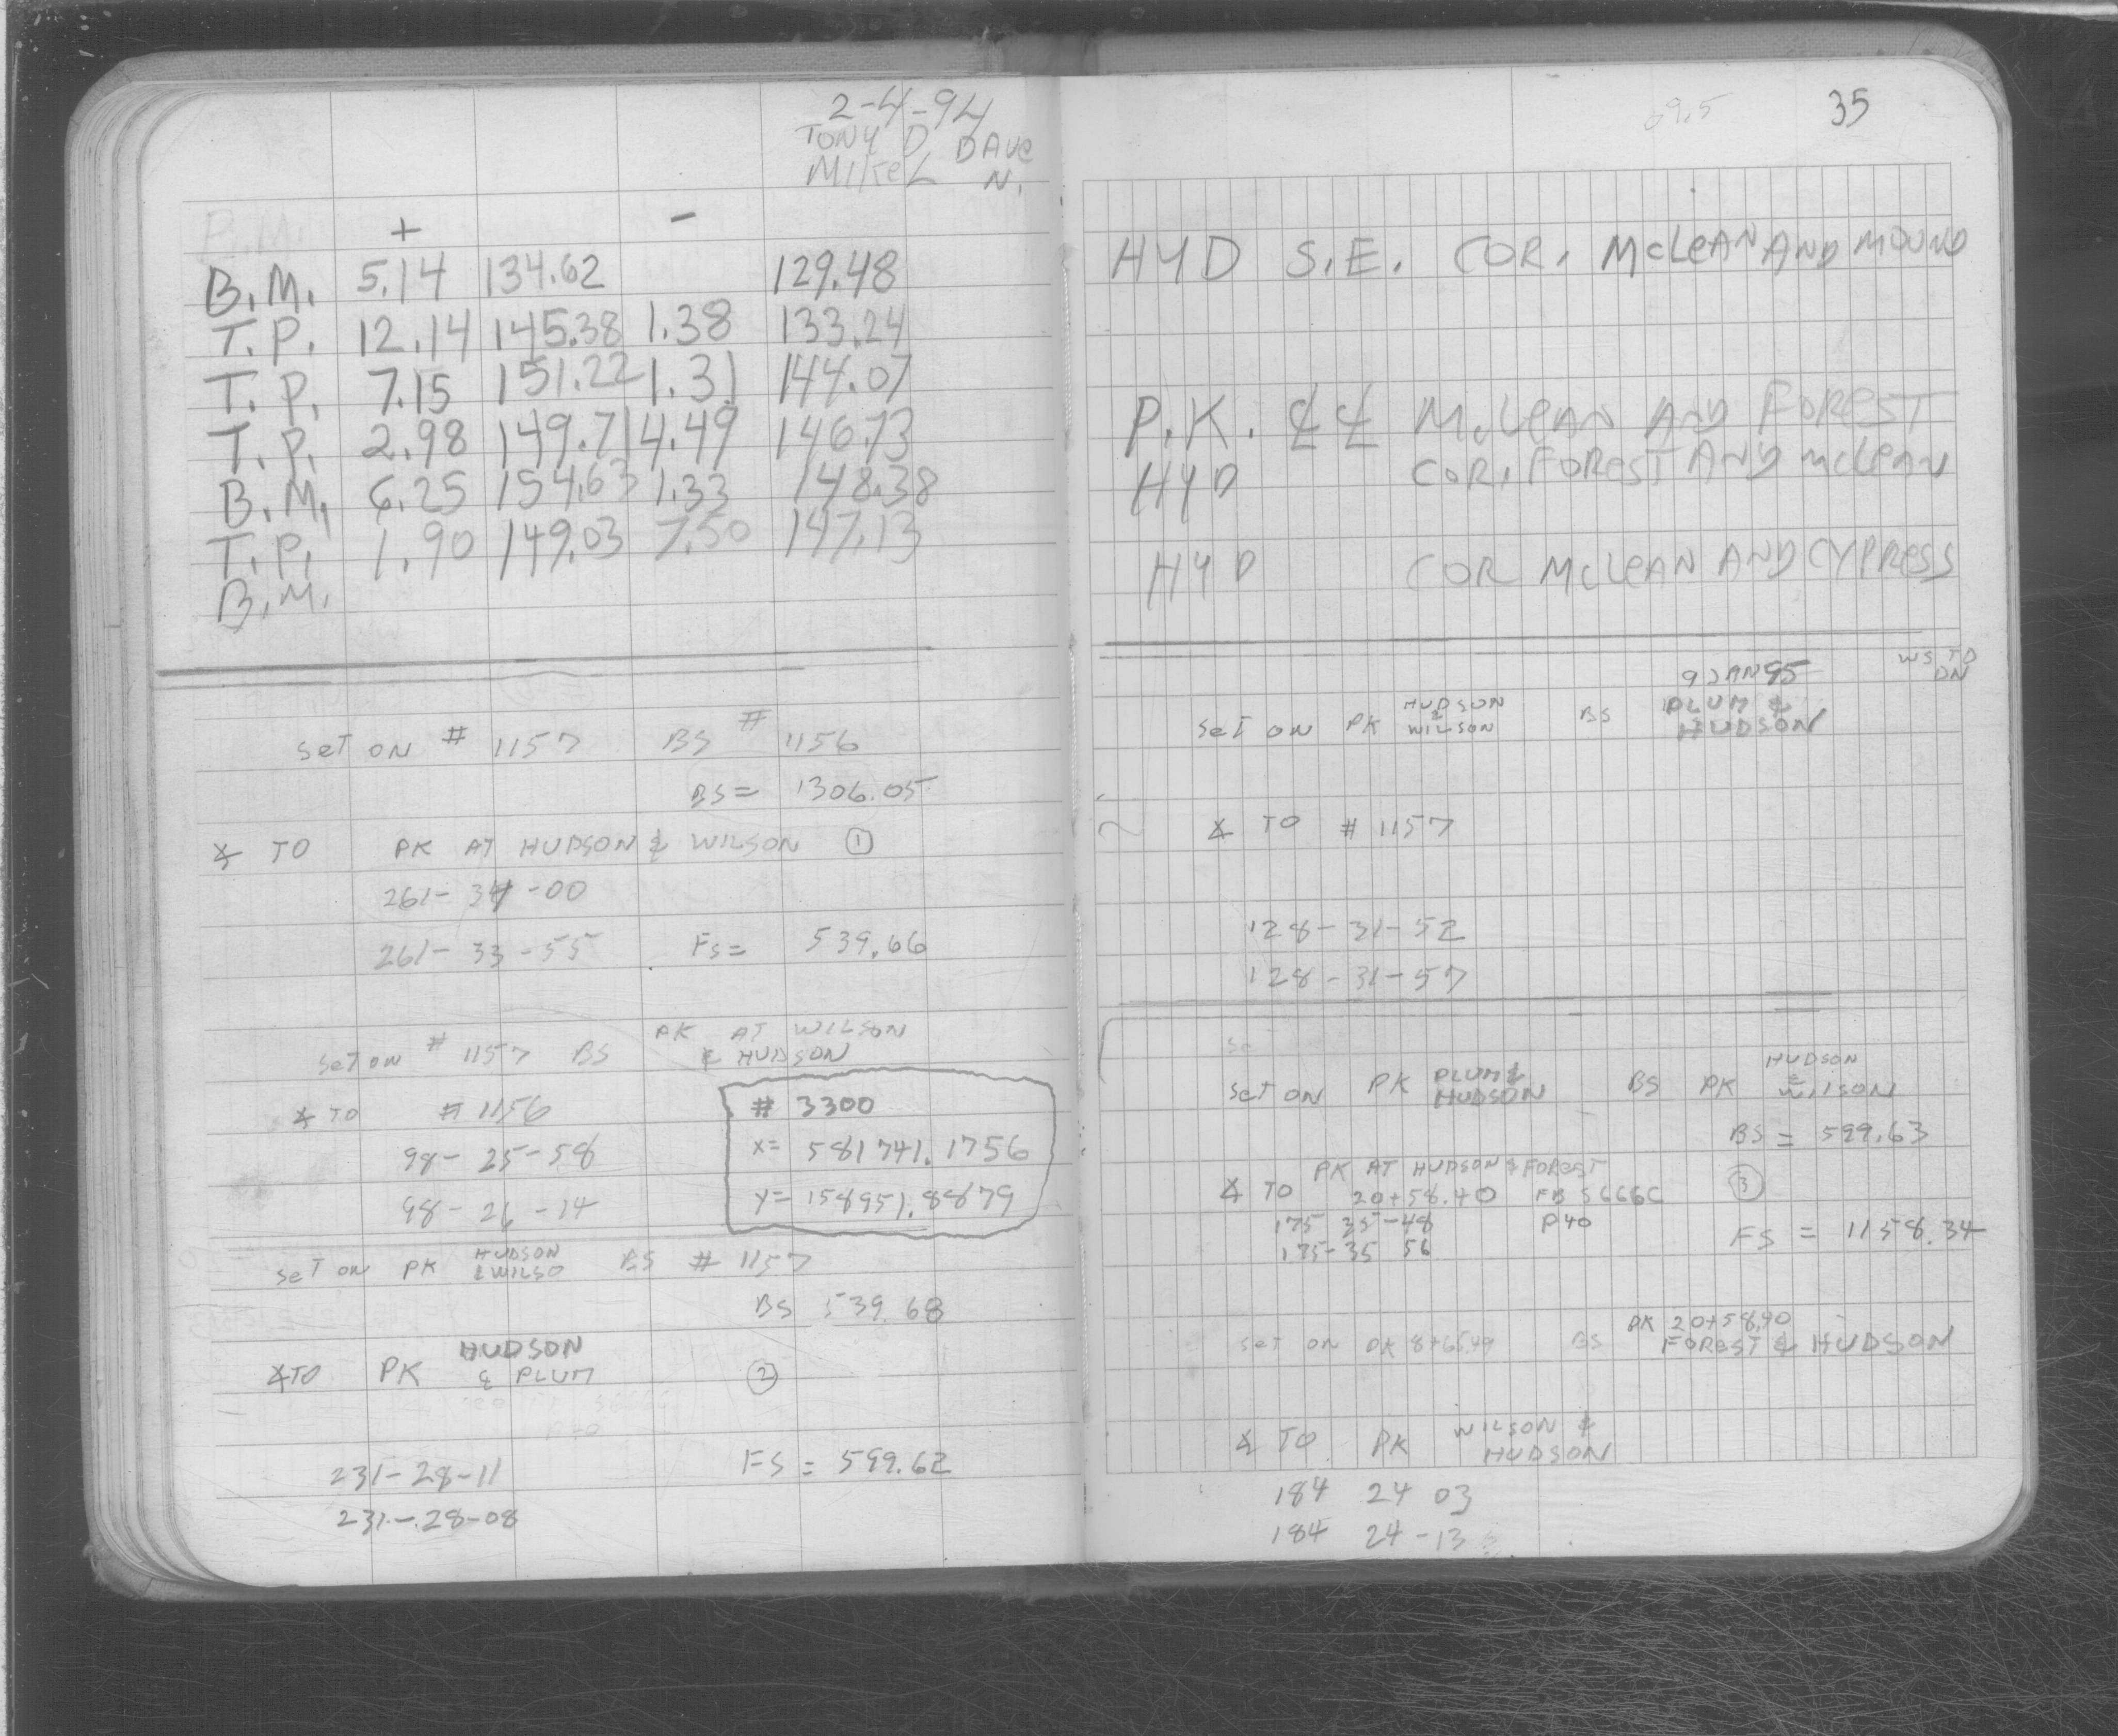 2-4-94
TONY D. DAVE
MIKE L N.
+ -
B.M. 5.14 134.62 129.48
T.P. 12.14 145.38 1.38 133.24
T.P. 7.15 151.22 1.31 144.07
T.P. 2.98 149.71 4.49 146.73
B.M. 6.25 154.63 1.33 148.38
T.P. 1.90 149.03 7.50 147.13
B.M.
SET ON # 1157 BS # 1156
BS = 1306.05
∡ TO PK AT HUDSON & WILSON ①
261-34-00
261-33-55 FS = 539.66
SET ON # 1157 BS PK AT WILSON
& HUDSON
∡ TO # 1156
98-25-58
98-26-14
# 3300
X= 581741.1756
Y= 158951.8879
SET ON PK HUDSON
& WILSO BS # 1157
BS 539.68
∡ TO PK HUDSON
& PLUM ②
231-28-11 FS = 599.62
231-28-08
69.5 35
HYD S.E. COR. McLEAN AND MOUND
P.K. ℄ ℄ McLEAN AND FOREST
HYD COR. FOREST AND McLEAN
HYD COR McLEAN AND CYPRESS
9 JAN 95 WS TD
DN
SET ON PK HUDSON
&
WILSON BS PLUM &
HUDSON
∡ TO # 1157
128-31-52
128-31-57
SET ON PK PLUM &
HUDSON BS PK HUDSON
&
WILSON
BS = 599.63
PK AT HUDSON & FOREST
∡ TO 20+58.40 FB 5666C ③
175 35-48 P40
175-35 56 FS = 1158.34
SET ON PK 8+65.49 BS PK 20+58.90
FOREST & HUDSON
∡ TO PK WILSON &
HUDSON
184 24 03
184 24-13